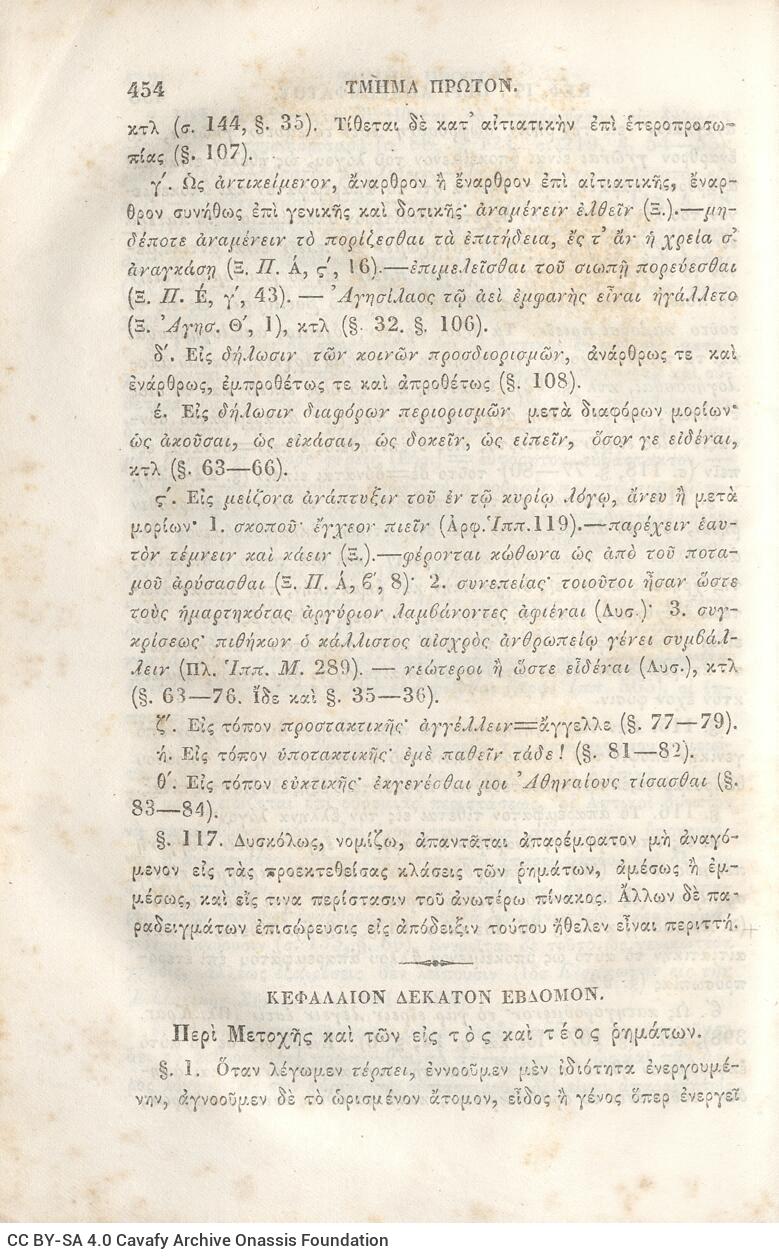 454 ΤΜΗΜΑ ΠΡΩΤΟΝ.
κτλ (σ. 144, §. 35). Τίθεται δὲ κατ᾽ αἰτιατικὴν ἐπὶ ἑτεροπροσω-
πίας (§. 107).
γ΄. Ὡς ἀντικείμενον, ἄναρθρον ἢ ἔναρθρον ἐπὶ αἰτιατικῆς, ἔναρ-
θρον συνήθως ἐπὶ γενικῆς καὶ δοτικῆς· ἀναμένειν ἐλθεῖν (Ξ.).—μη-
δέποτε ἀναμένειν τὸ πορίζεσθαι τὰ ἐπιτήδεια, ἔς τ᾽ ἂν ἡ χρεία σ᾽
ἀναγκάσῃ (Ξ. Π. Ά, ϛ΄, 16).—ἐπιμελεῖσθαι τοῦ σιωπῇ πορεύεσθαι
(Ξ. Π. Έ, γ΄, 43). — Ἀγησίλαος τῷ ἀεὶ ἐμφανὴς εἶναι ἠγάλλετο
(Ξ. Ἀγησ. Θ΄, 1), κτλ (§. 32. §. 106).
δ΄. Εἰς δήλωσιν τῶν κοινῶν προσδιορισμῶν, ἀνάρθρως τε καὶ
ἐνάρθρως, ἐμπροθέτως τε καὶ ἀπροθέτως (§. 108).
έ. Εἰς δήλωσιν διαφόρων περιορισμῶν μετὰ διαφόρων μορίων·
ὡς ἀκοῦσαι, ὡς εἰκάσαι, ὡς δοκεῖν, ὡς εἰπεῖν, ὅσον γε εἰδέναι,
κτλ (§. 63—66).
ϛ΄. Εἰς μείζονα ἀνάπτυξιν τοῦ ἐν τῷ κυρίῳ λόγῳ, ἄνευ ἢ μετὰ
μορίων· 1. σκοποῦ· ἔγχεον πιεῖν (Ἀρφ. Ἱππ. 119).—παρέχειν ἑαυ-
τὸν τέμνειν καὶ κάειν (Ξ.).—φέρονται κώθωνα ὡς ἀπὸ τοῦ ποτα-
μοῦ ἀρύσασθαι (Ξ. Π. Ά, β΄, 8)· 2. συνεπείας· τοιοῦτοι ἦσαν ὥστε
τοὺς ἡμαρτηκότας ἀργύριον λαμβάνοντες ἀφιέναι (Λυσ.)· 3. συγ-
κρίσεως· πιθήκων ὁ κάλλιστος αἰσχρὸς ἀνθρωπείῳ γένει συμβάλ-
λειν (Πλ. Ἱππ. Μ. 289). — νεώτεροι ἢ ὥστε εἰδέναι (Λυσ.), κτλ
(§. 63—76. ἴδε καὶ §. 35—36).
ζ΄. Εἰς τόπον προστακτικῆς· ἀγγέλλειν=ἄγγελλε (§. 77—79).
ή. Εἰς τόπον ὑποτακτικῆς· ἐμὲ παθεῖν τάδε! (§. 81—82).
θ΄. Εἰς τόπον εὐκτικῆς· ἐκγενέσθαι μοι Ἀθηναίους τίσασθαι (§.
83—84).
§. 117. Δυσκόλως, νομίζω, ἀπαντᾶται ἀπαρέμφατον μὴ ἀναγό-
μενον εἰς τὰς προεκτεθείσας κλάσεις τῶν ῥημάτων, ἀμέσως ἢ ἐμ-
μέσως, καὶ εἴς τινα περίστασιν τοῦ ἀνωτέρω πίνακος. Ἄλλων δὲ πα-
ραδειγμάτων ἐπισώρευσις εἰς ἀπόδειξιν τούτου ἤθελεν εἶναι περιττή.
ΚΕΦΑΛΑΙΟΝ ΔΕΚΑΤΟΝ ΕΒΔΟΜΟΝ.
Περὶ Μετοχῆς καὶ τῶν εἰς τὸς καὶ τέος ῥημάτων.
§. 1. Ὅταν λέγωμεν τέρπει, ἐννοοῦμεν μὲν ἰδιότητα ἐνεργουμέ-
νην, ἀγνοοῦμεν δὲ τὸ ὡρισμένον ἄτομον, εἶδος ἢ γένος ὅπερ ἐνεργεῖ
CC BY-SA 4.0 Cavafy Archive Onassis Foundation